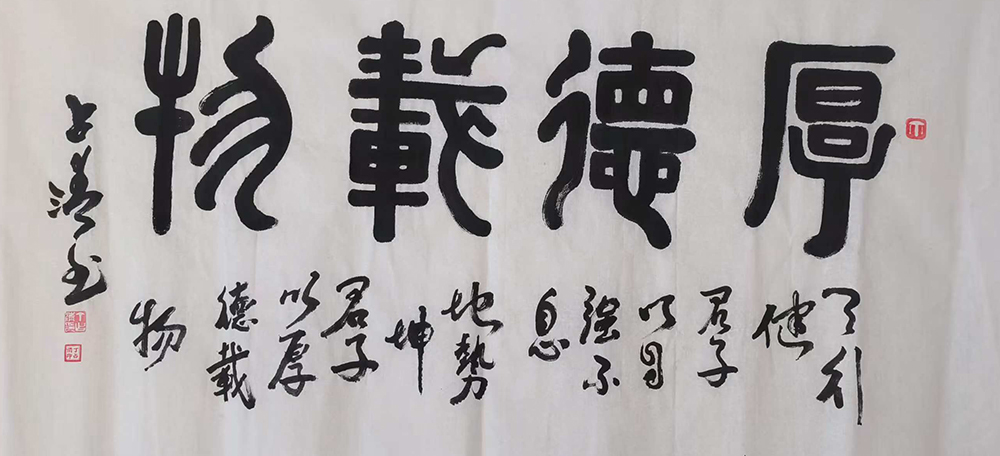 厚德載物
天行
健
君子
以自
強不
息
地勢
坤
君子
以厚
德載
物